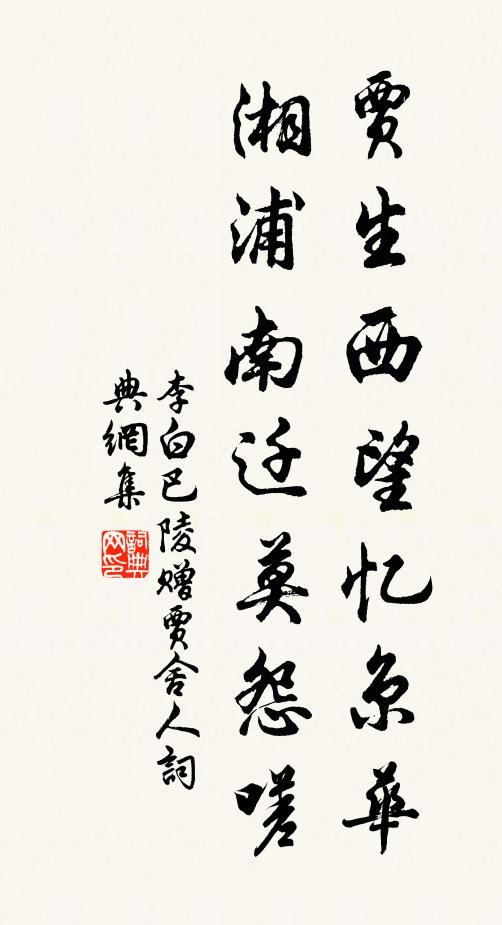 贾生西望忆京华
湘浦南迁莫怨嗟
李白巴陵赠贾舍人詞
典網集
詞典
网印